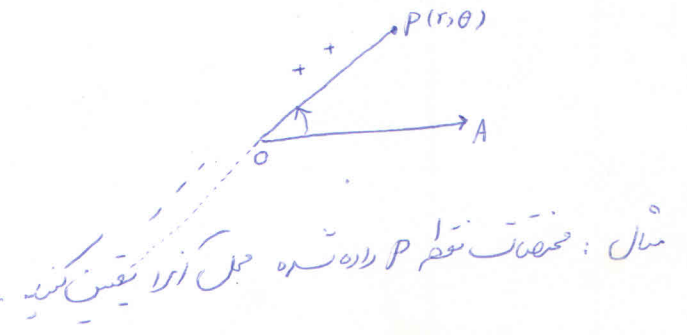 P(r,θ)
+ +
A
O
مثال : مختصات نقطه P داده شده محل آنرا تعیین کنید .